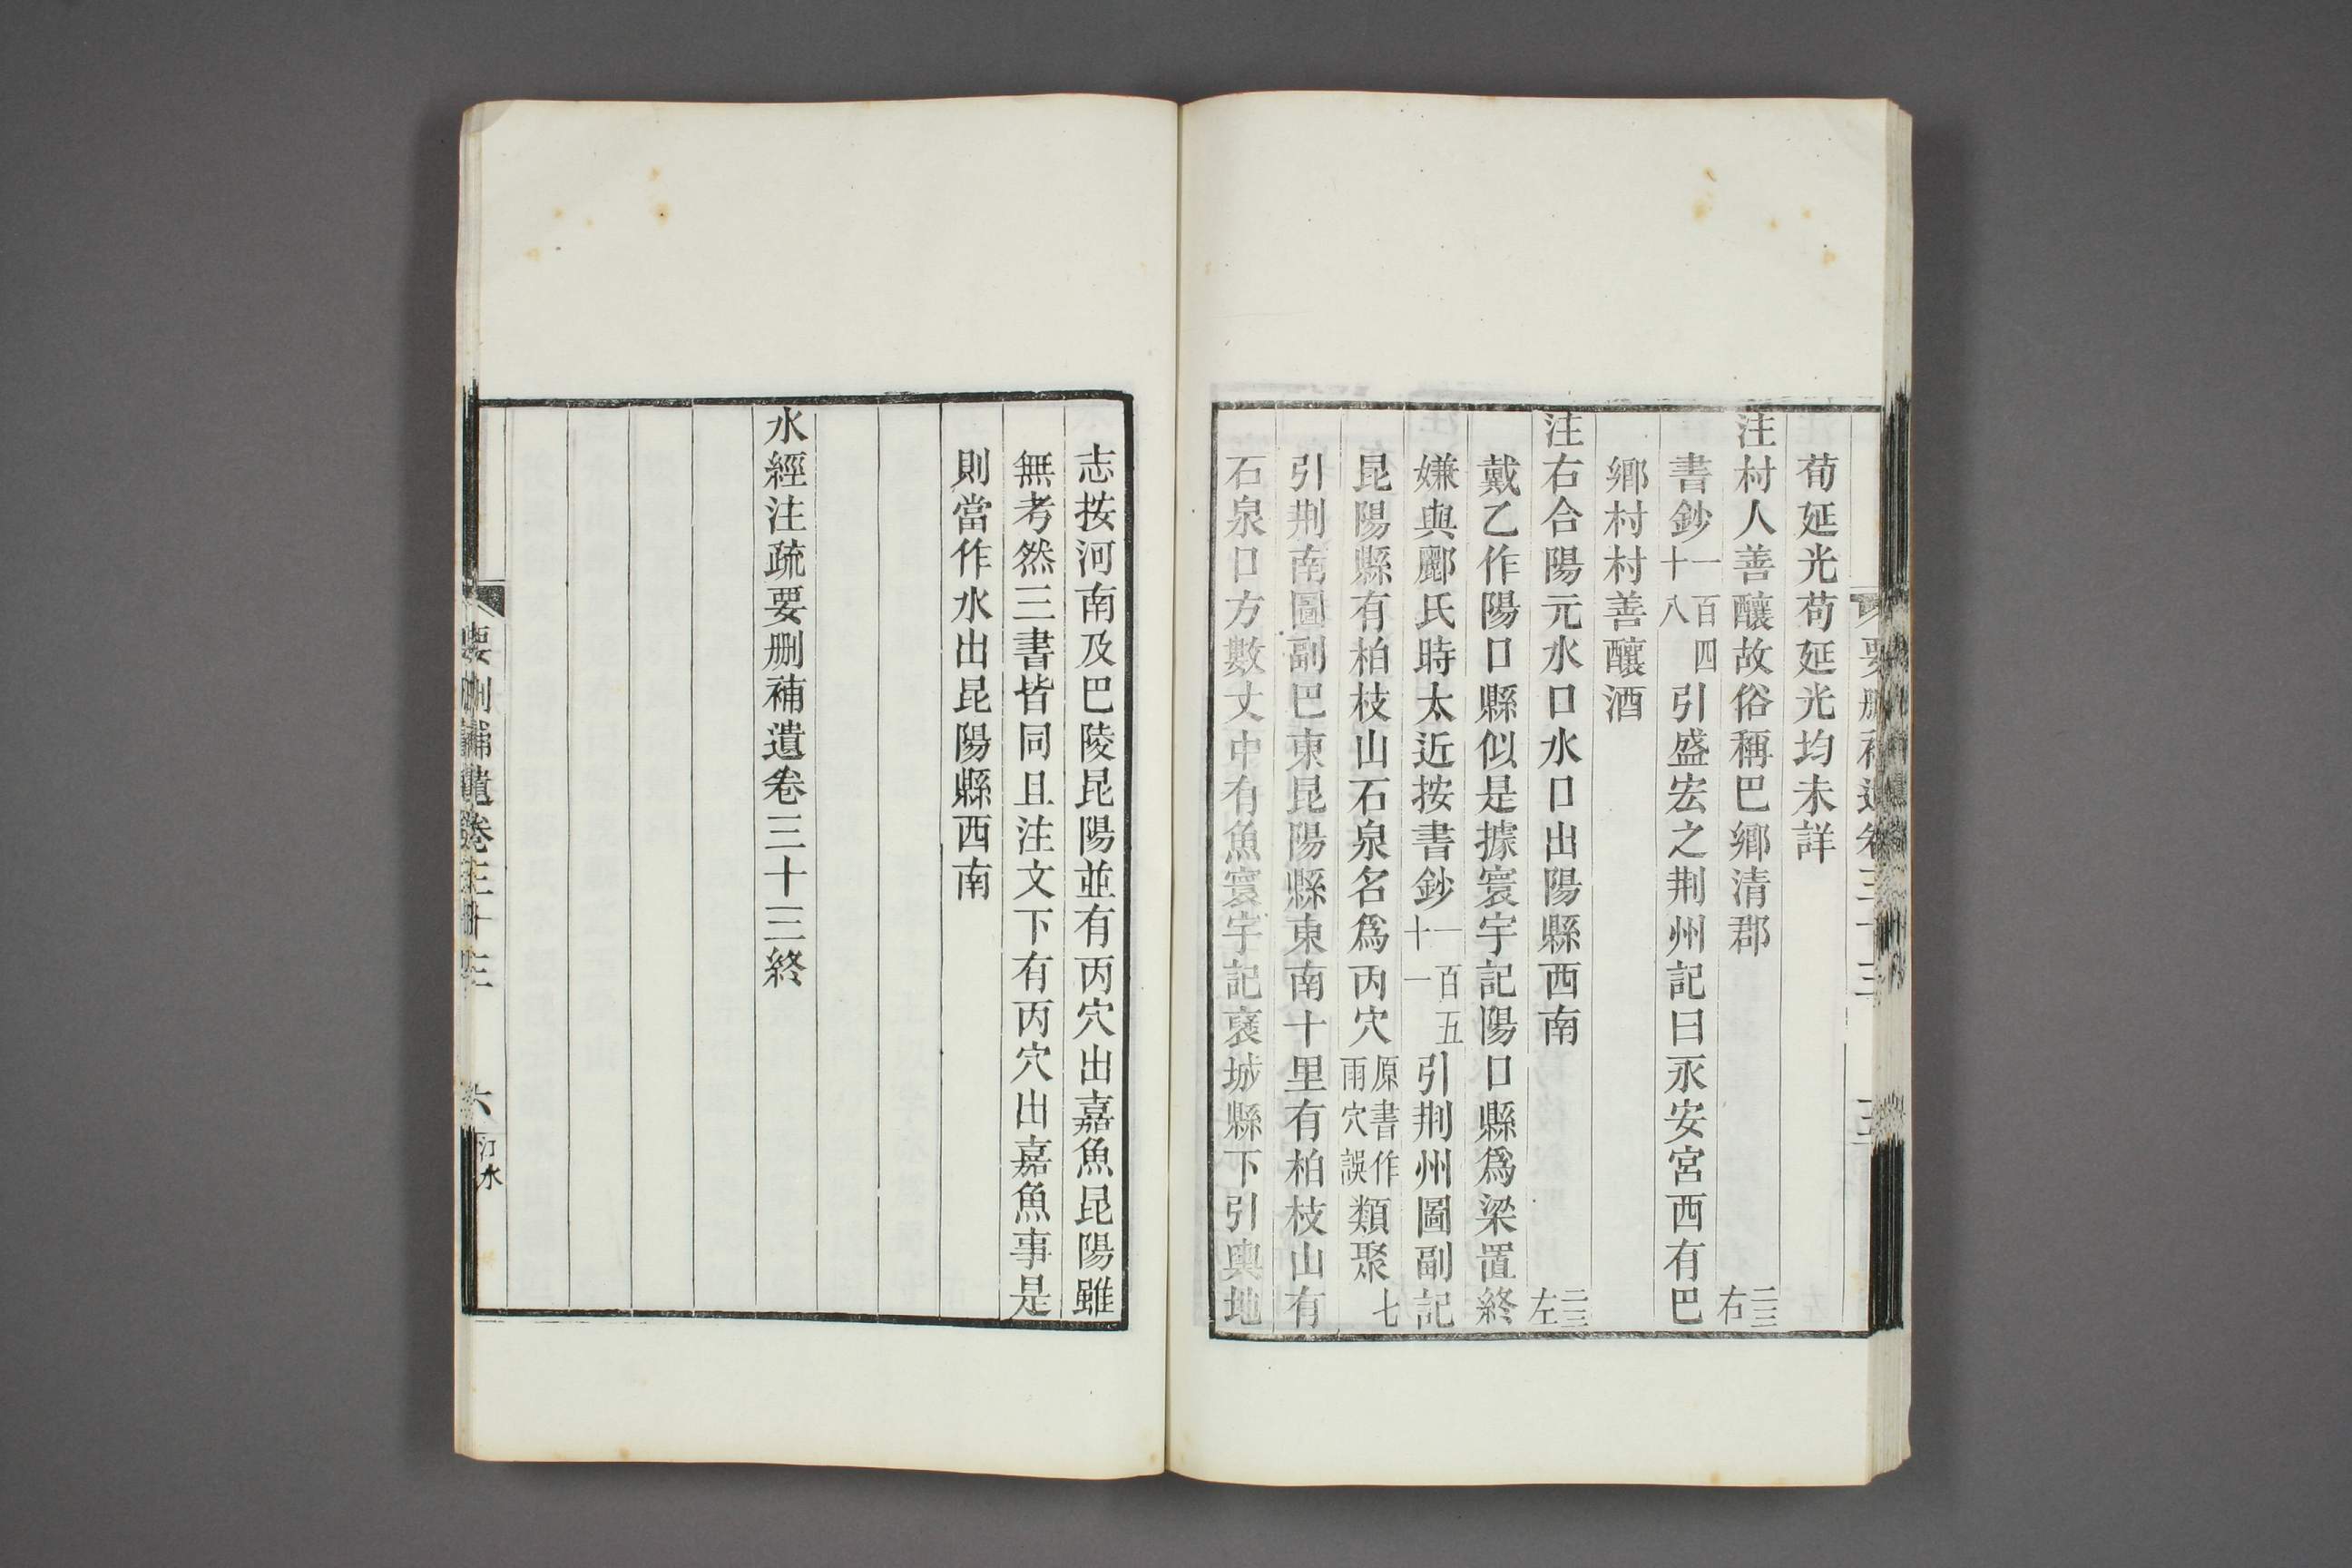 荀延光苟延光均未詳
注村人善釀故俗稱巴鄉清郡二三右
書鈔一百四十八引盛宏之荆州記曰永安宮西有巴
鄉村村善釀酒
注右合陽元水口水口出陽縣西南二三左
戴乙作陽口縣似是據寰宇記陽口縣爲梁置終
嫌與酈氏時太近按書鈔一百五十一引荆州圖副記
昆陽縣有柏枝山石泉名爲丙穴原書作雨穴誤類聚七
引荆南圖副巴東昆陽縣東南十里有柏枝山有
石泉口方數丈中有魚寰宇記襃城縣下引輿地
志按河南及巴陵昆陽並有丙穴出嘉魚昆陽雖
無考然三書皆同且注文下有丙穴出嘉魚事是
則當作水出昆陽縣西南
水經注疏要删補遺卷三十三終
要删補遺卷三十三 六